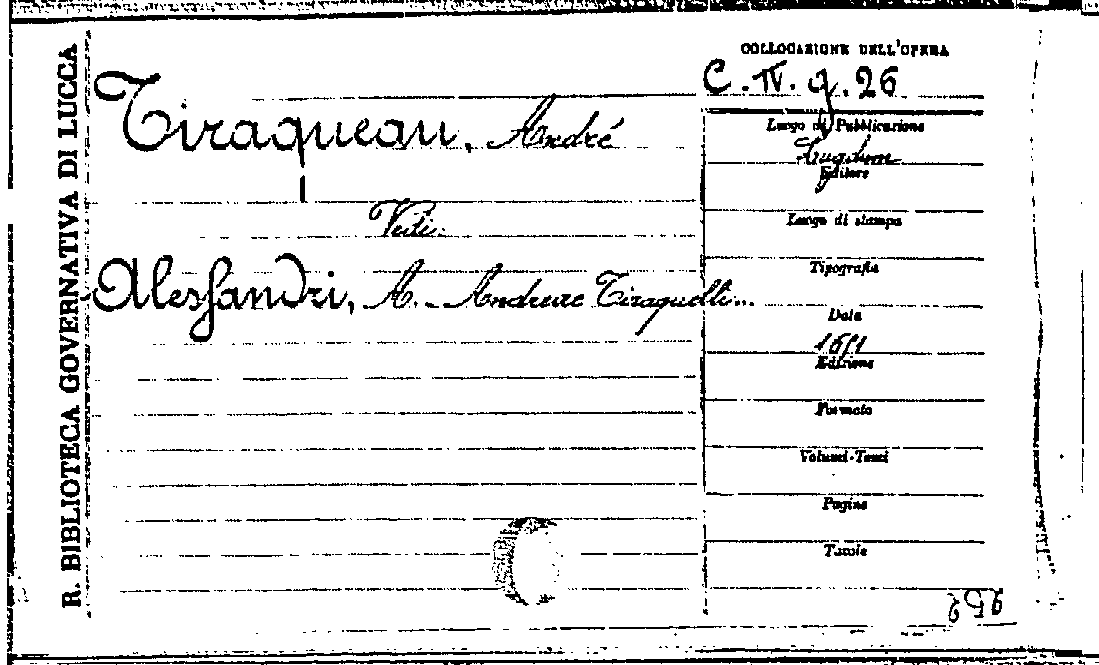 R. BIBLIOTECA GOVERNATIVA DI LUCCA
COLLOCAZIONE DELL'OPERA
C. IV. g. 26
Tiraqueau, André
Vedi:
Alessandri, A. - Andreae Tiraquelli...
Luogo di Pubblicazione
Lugdun
Editore
Luogo di stampa
Tipografia
Data
Edizione
Formato
Volumi-Tomi
Pagine
Tavole